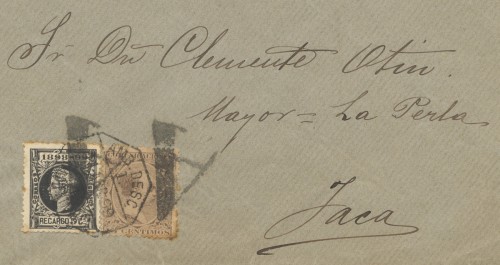 Sr Dn Clemente Otin.
Mayor = La Perla
Jaca
1898-99
RECARGO 5 C.
CENTIMOS